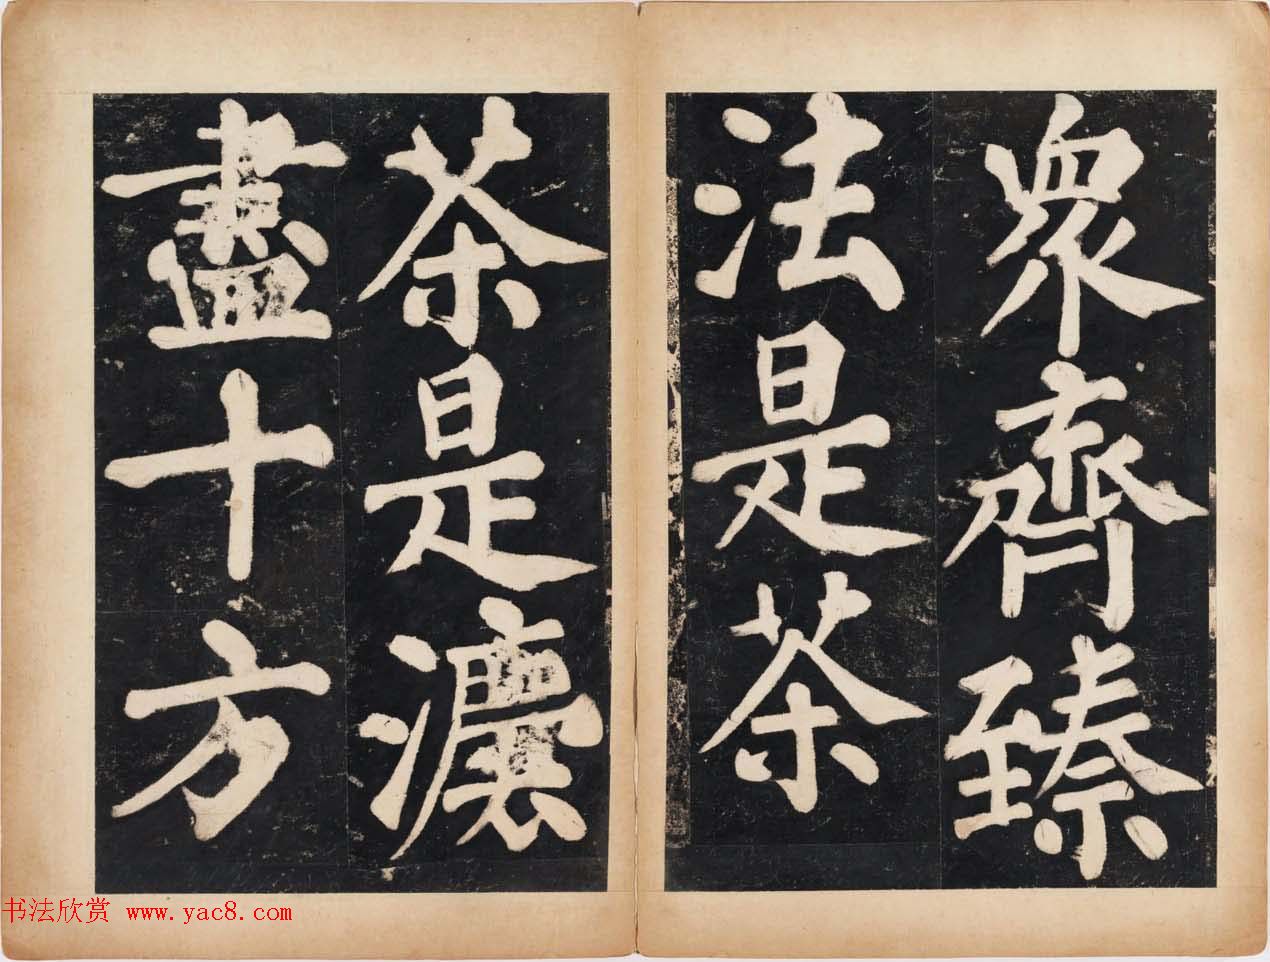 眾齊臻
法是茶
茶是灋
盡十方
书法欣赏 www.yac8.com